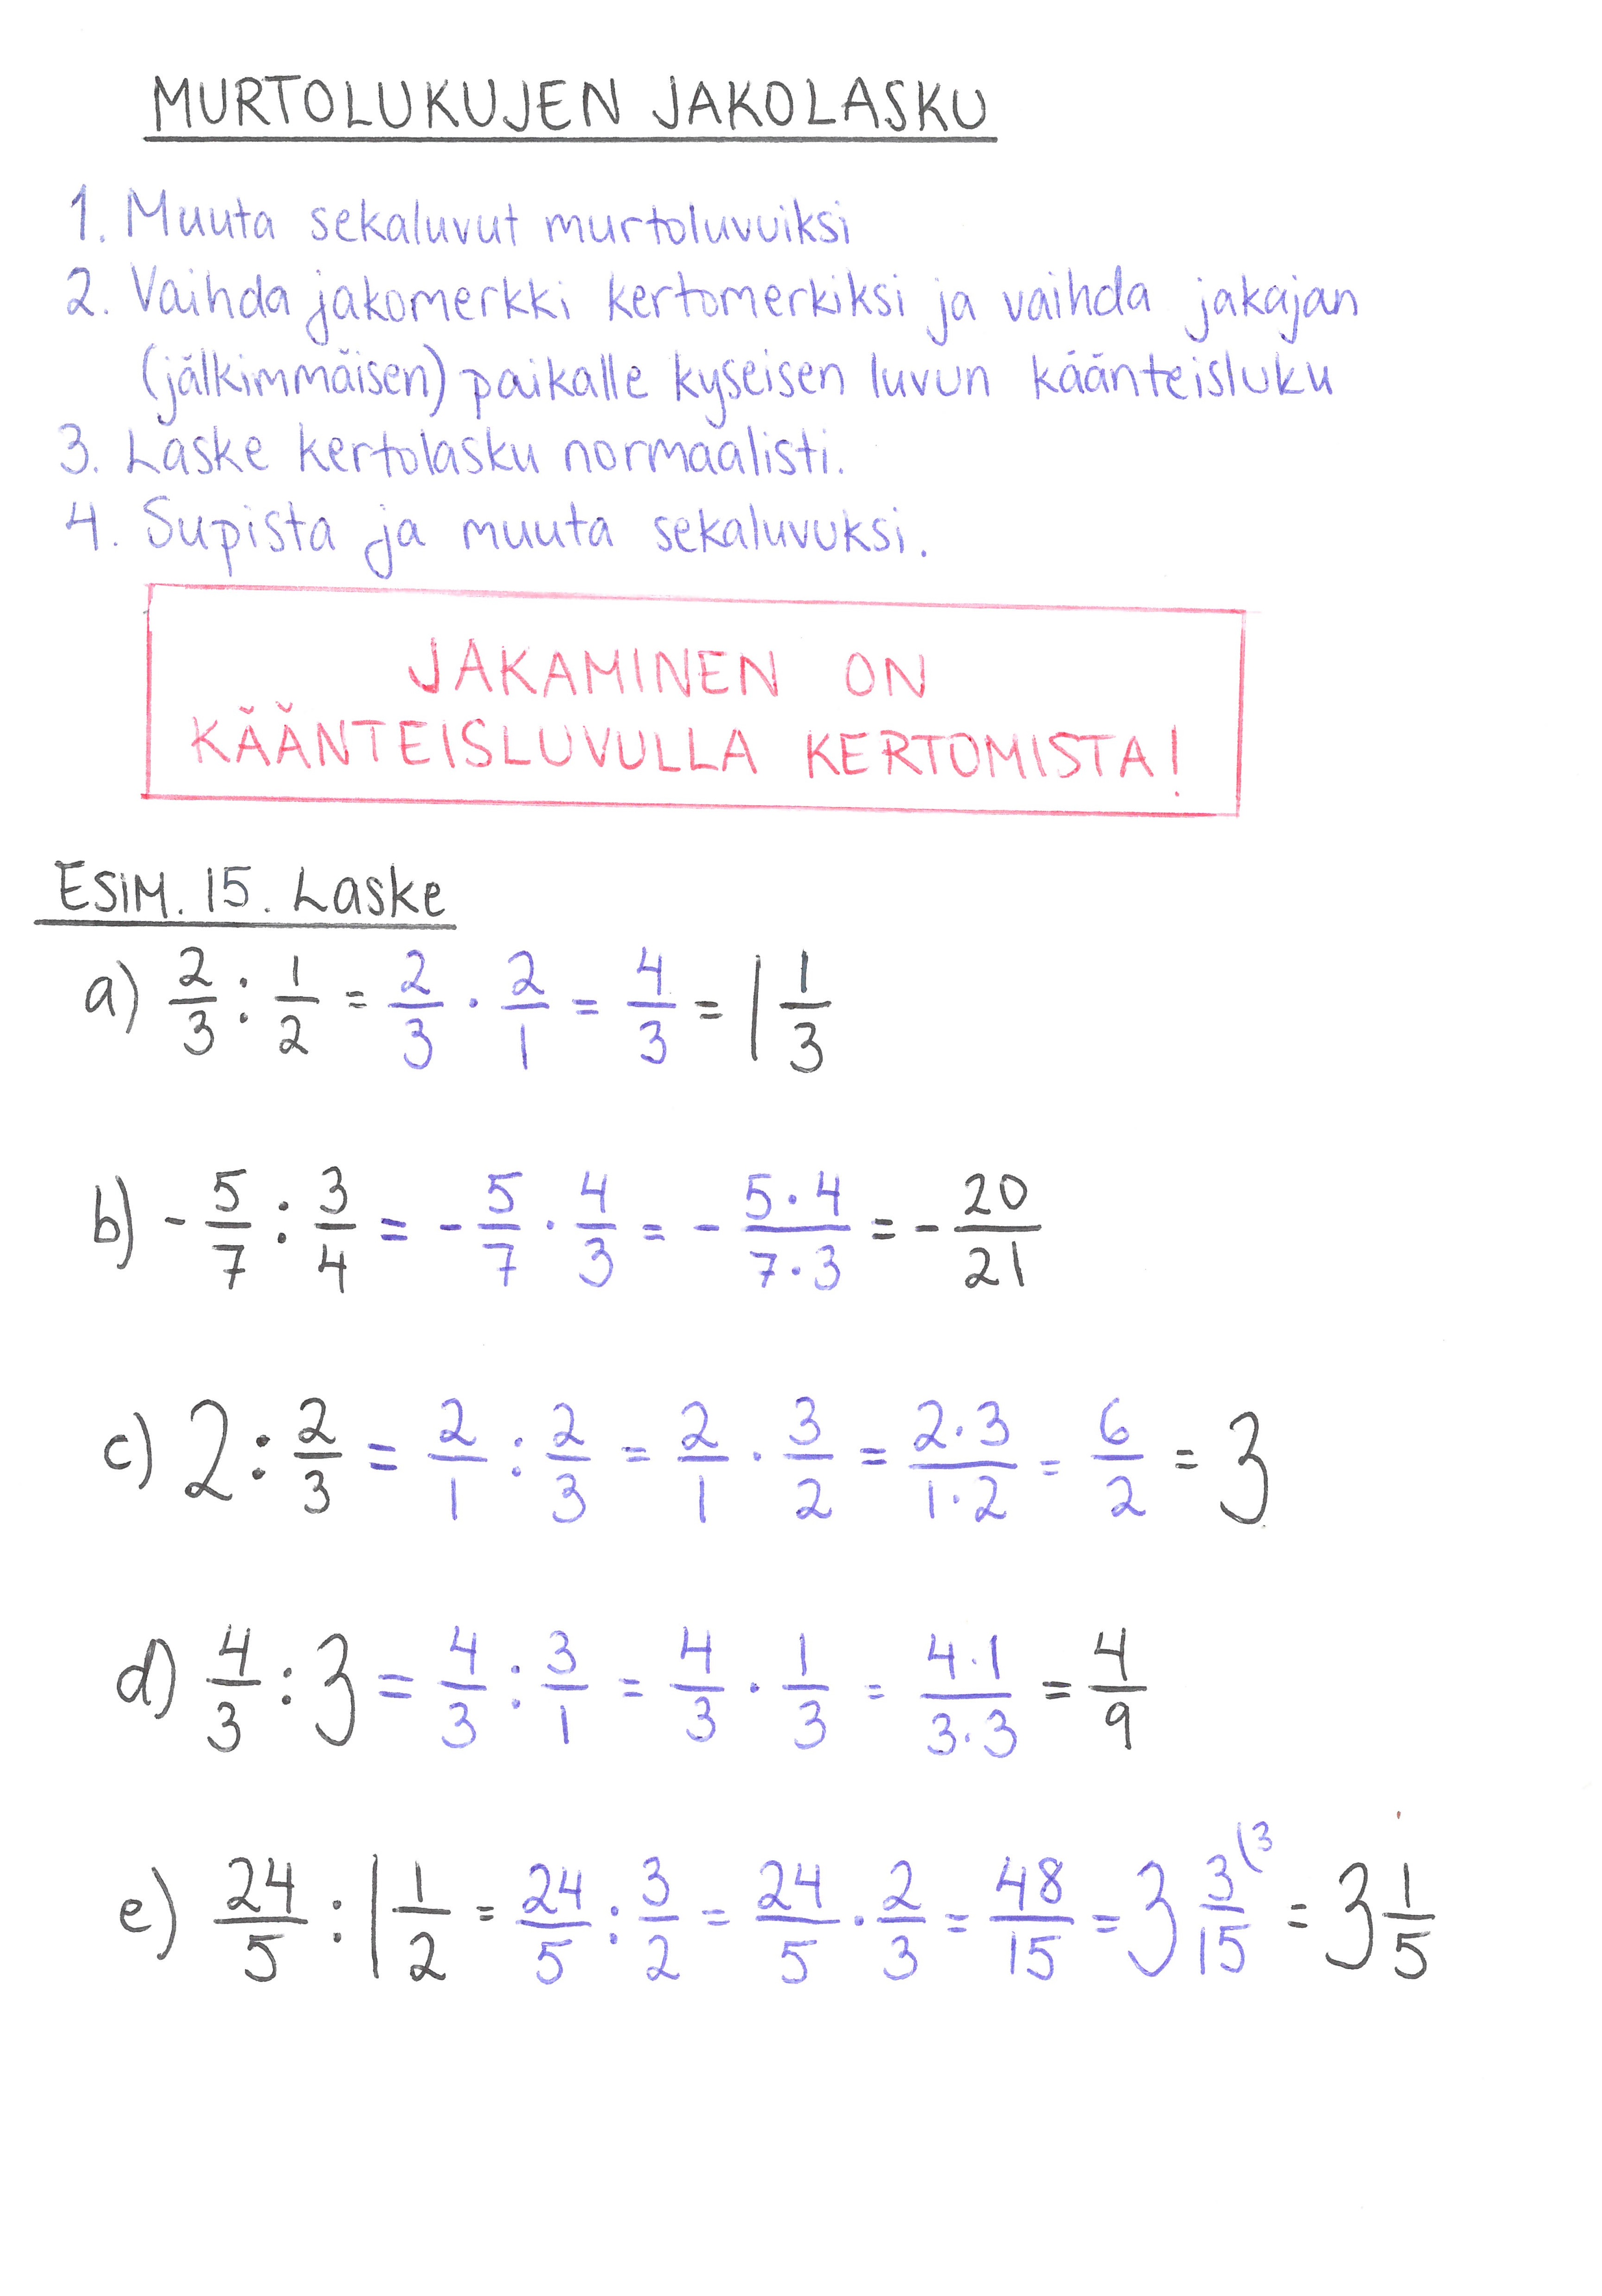 MURTOLUKUJEN JAKOLASKU
1. Muuta sekaluvut murtoluvuiksi
2. Vaihda jakomerkki kertomerkiksi ja vaihda jakajan
(jälkimmäisen) paikalle kyseisen luvun käänteisluku
3. Laske kertolasku normaalisti.
4. Supista ja muuta sekaluvuksi.
JAKAMINEN ON
KÄÄNTEISLUVULLA KERTOMISTA!
ESIM. 15. Laske
a) 2/3 : 1/2 = 2/3 · 2/1 = 4/3 = 1 1/3
b) - 5/7 : 3/4 = - 5/7 · 4/3 = - 5·4/7·3 = - 20/21
c) 2 : 2/3 = 2/1 : 2/3 = 2/1 · 3/2 = 2·3/1·2 = 6/2 = 3
d) 4/3 : 3 = 4/3 : 3/1 = 4/3 · 1/3 = 4·1/3·3 = 4/9
e) 24/5 : 1 1/2 = 24/5 : 3/2 = 24/5 · 2/3 = 48/15 = 3 3/15 (3 = 3 1/5